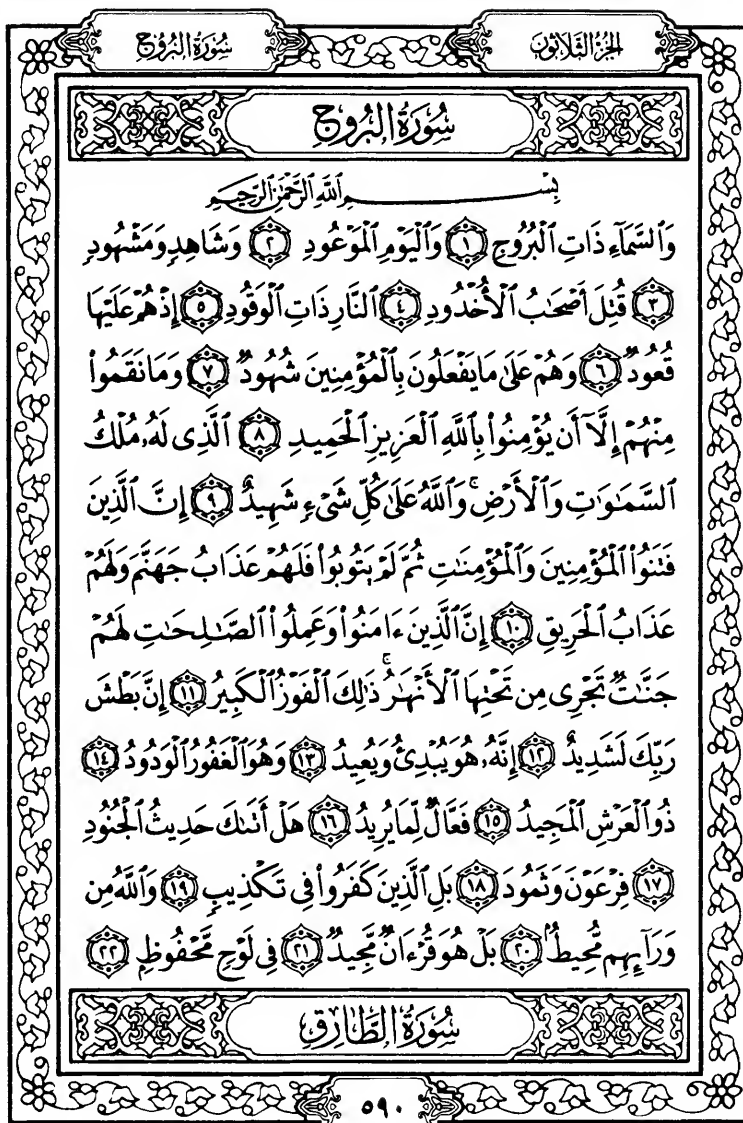 الجزء الثلاثون
سورة البروج
سُورَةُ البُرُوجِ
بِسْمِ اللَّهِ الرَّحْمَٰنِ الرَّحِيمِ
وَٱلسَّمَآءِ ذَاتِ ٱلْبُرُوجِ ١ وَٱلْيَوْمِ ٱلْمَوْعُودِ ٢ وَشَاهِدٍ وَمَشْهُودٍ
٣ قُتِلَ أَصْحَٰبُ ٱلْأُخْدُودِ ٤ ٱلنَّارِ ذَاتِ ٱلْوَقُودِ ٥ إِذْ هُمْ عَلَيْهَا
قُعُودٌ ٦ وَهُمْ عَلَىٰ مَا يَفْعَلُونَ بِٱلْمُؤْمِنِينَ شُهُودٌ ٧ وَمَا نَقَمُوا۟
مِنْهُمْ إِلَّآ أَن يُؤْمِنُوا۟ بِٱللَّهِ ٱلْعَزِيزِ ٱلْحَمِيدِ ٨ ٱلَّذِى لَهُۥ مُلْكُ
ٱلسَّمَٰوَٰتِ وَٱلْأَرْضِ ۚ وَٱللَّهُ عَلَىٰ كُلِّ شَىْءٍ شَهِيدٌ ٩ إِنَّ ٱلَّذِينَ
فَتَنُوا۟ ٱلْمُؤْمِنِينَ وَٱلْمُؤْمِنَٰتِ ثُمَّ لَمْ يَتُوبُوا۟ فَلَهُمْ عَذَابُ جَهَنَّمَ وَلَهُمْ
عَذَابُ ٱلْحَرِيقِ ١٠ إِنَّ ٱلَّذِينَ ءَامَنُوا۟ وَعَمِلُوا۟ ٱلصَّٰلِحَٰتِ لَهُمْ
جَنَّٰتٌ تَجْرِى مِن تَحْتِهَا ٱلْأَنْهَٰرُ ۚ ذَٰلِكَ ٱلْفَوْزُ ٱلْكَبِيرُ ١١ إِنَّ بَطْشَ
رَبِّكَ لَشَدِيدٌ ١٢ إِنَّهُۥ هُوَ يُبْدِئُ وَيُعِيدُ ١٣ وَهُوَ ٱلْغَفُورُ ٱلْوَدُودُ ١٤
ذُو ٱلْعَرْشِ ٱلْمَجِيدُ ١٥ فَعَّالٌ لِّمَا يُرِيدُ ١٦ هَلْ أَتَىٰكَ حَدِيثُ ٱلْجُنُودِ
١٧ فِرْعَوْنَ وَثَمُودَ ١٨ بَلِ ٱلَّذِينَ كَفَرُوا۟ فِى تَكْذِيبٍ ١٩ وَٱللَّهُ مِن
وَرَآئِهِم مُّحِيطٌۢ ٢٠ بَلْ هُوَ قُرْءَانٌ مَّجِيدٌ ٢١ فِى لَوْحٍ مَّحْفُوظٍۭ ٢٢
سُورَةُ الطَّارِقِ
٥٩٠